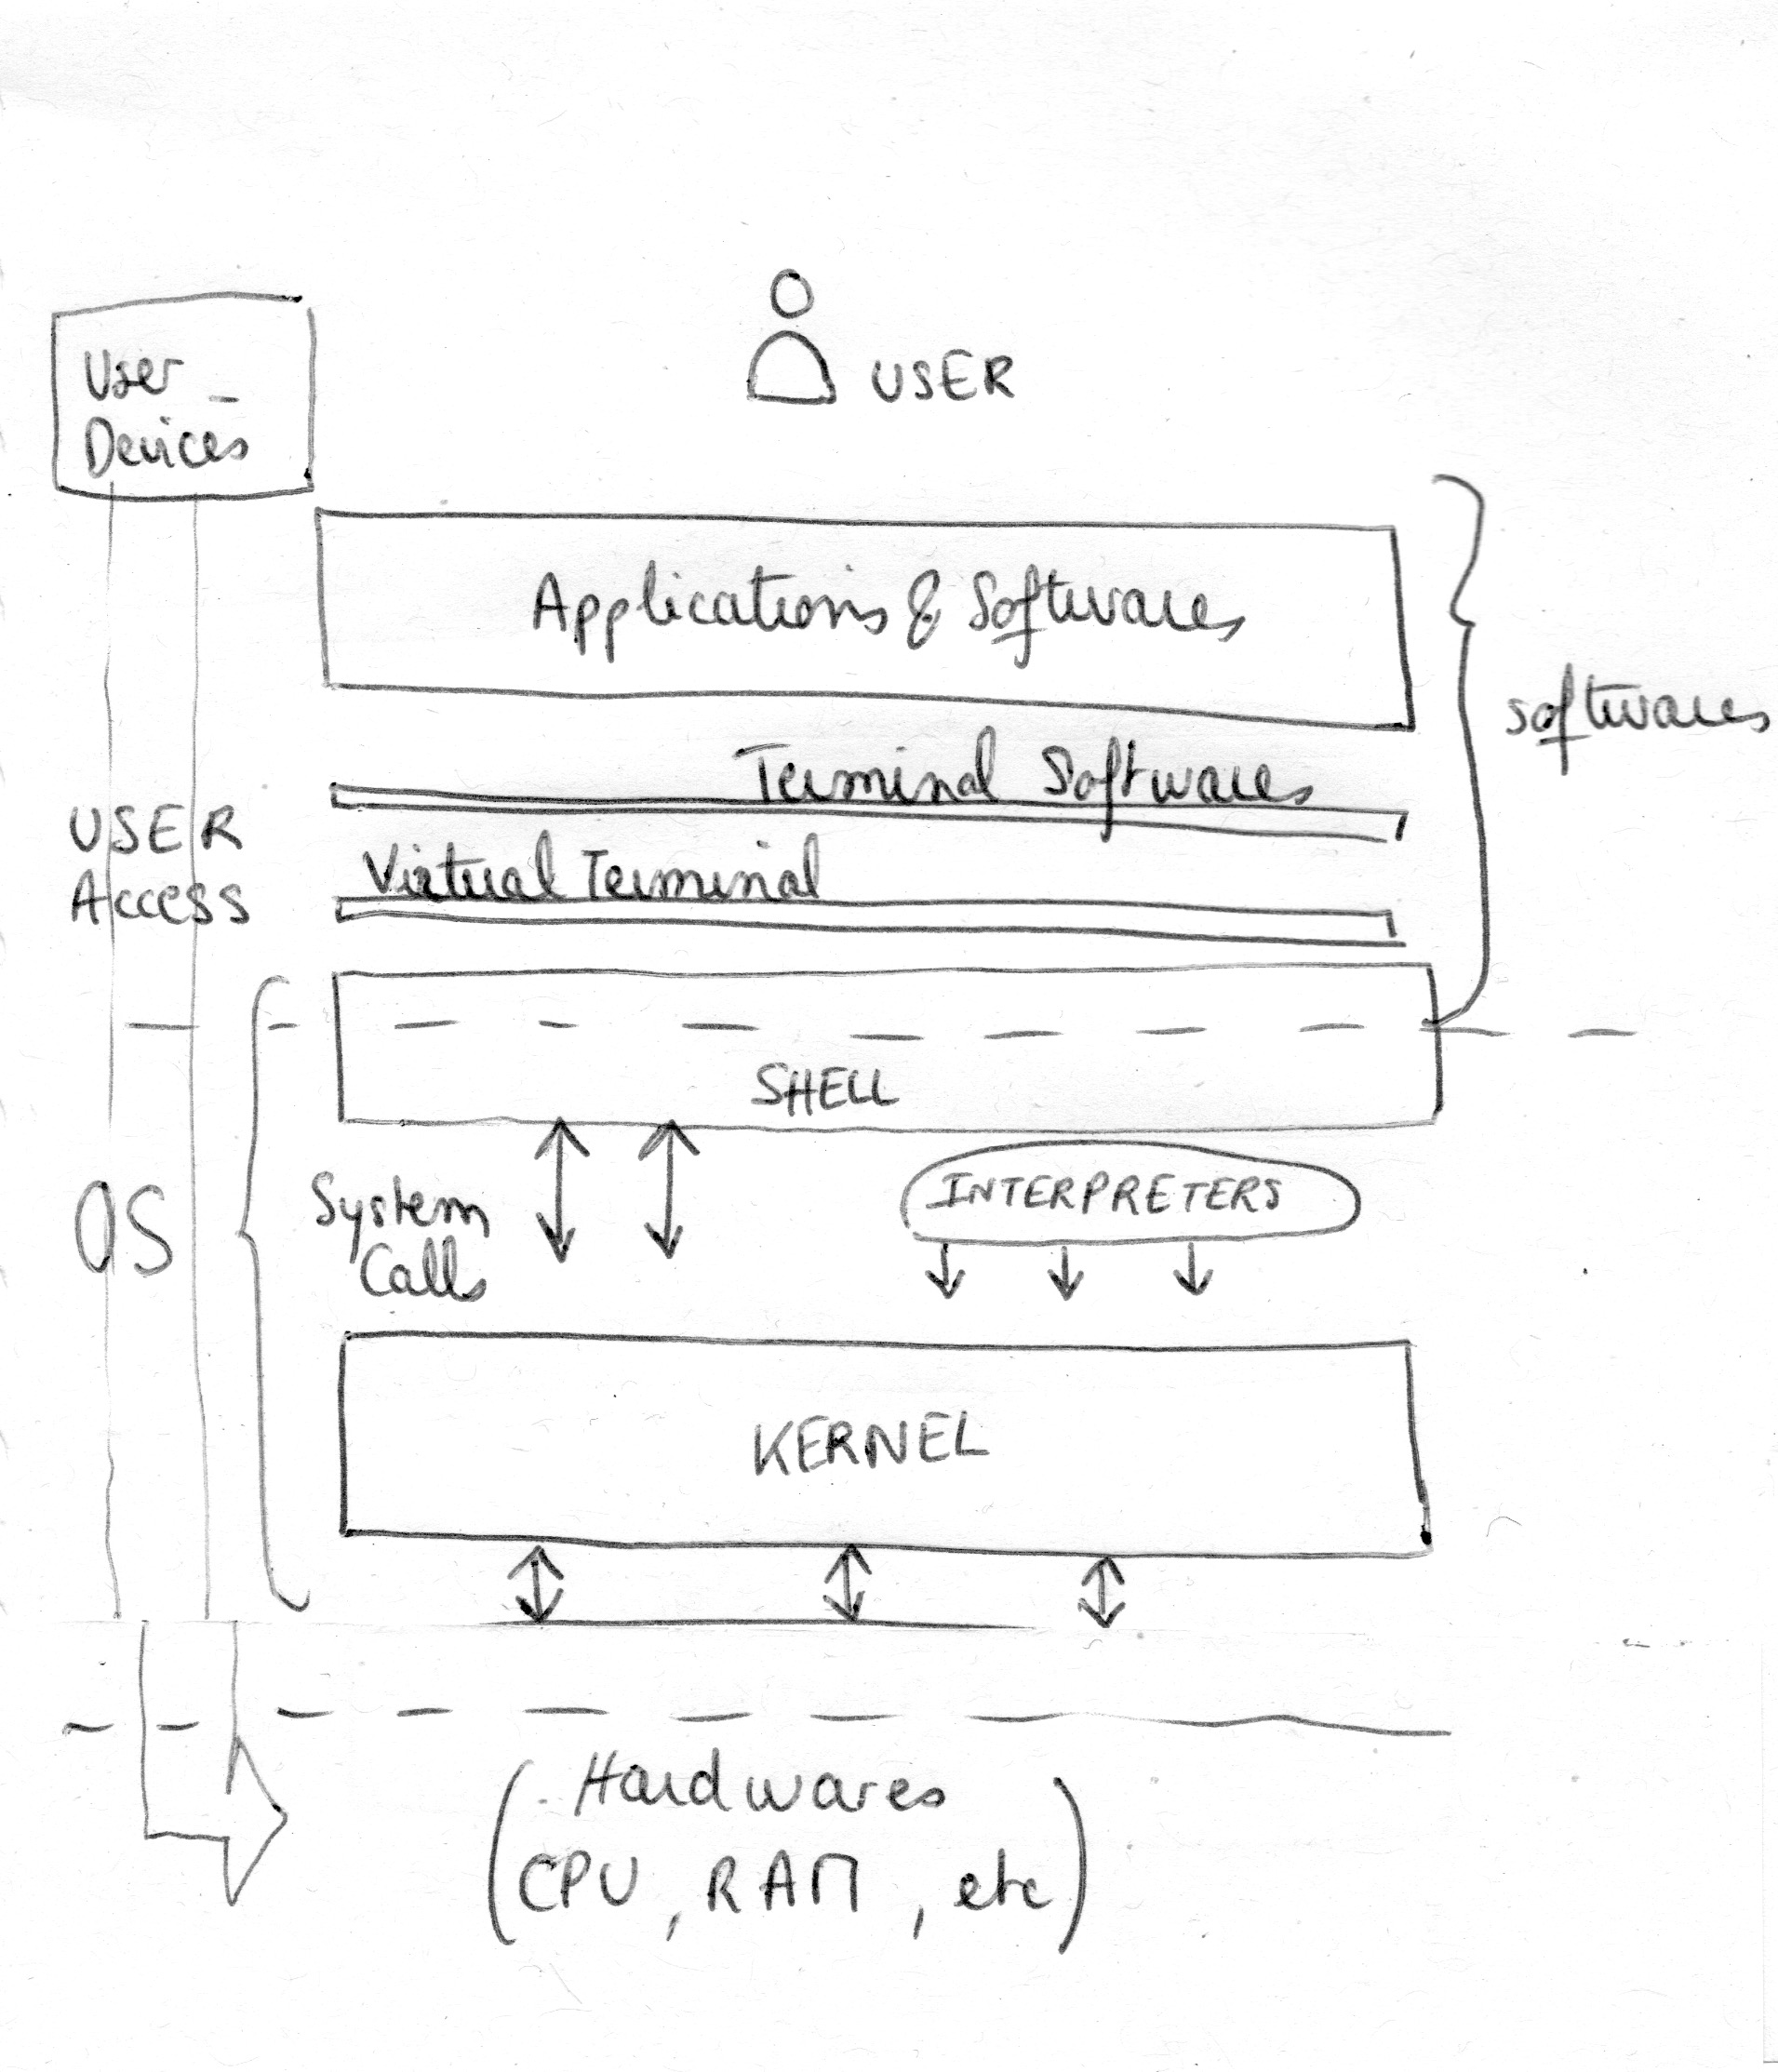 User
Devices
USER
Applications & Softwares
softwares
Terminal Softwares
USER
Access
Virtual Terminal
SHELL
OS
System
Calls
INTERPRETERS
KERNEL
Hardwares
(CPU, RAM, etc)